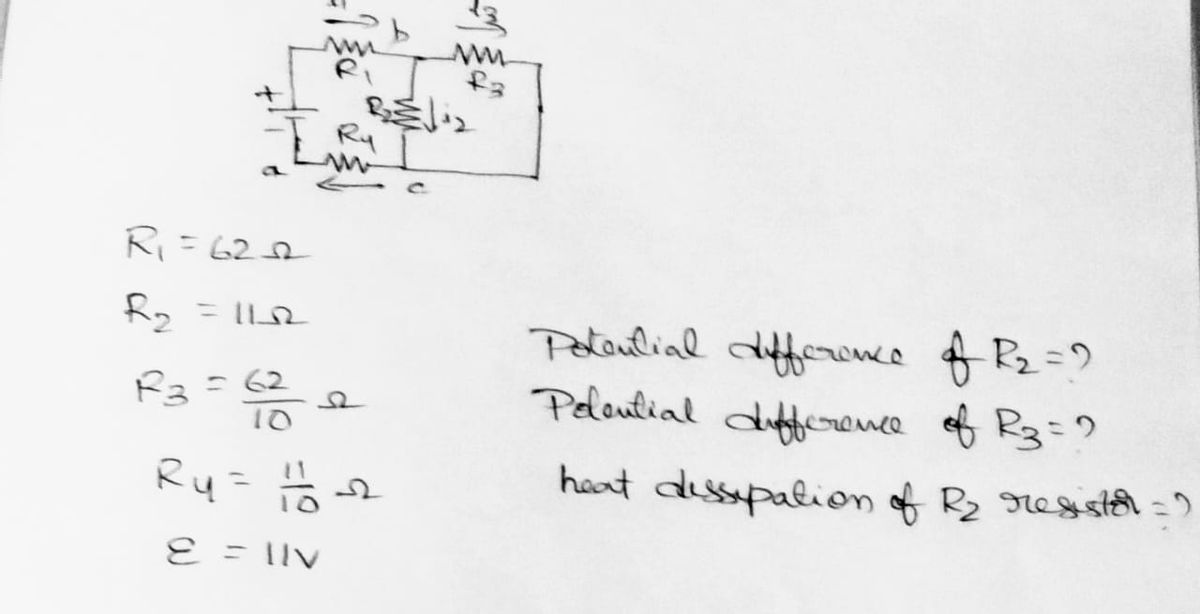 i3
b
R1
R3
+
R2 i2
-
R4
a
c
R1 = 62 Ω
R2 = 11Ω
R3 = 62/10 Ω
R4 = 11/10 Ω
ε = 11V
Potential difference of R2 = ?
Potential difference of R3 = ?
heat dissipation of R2 resistor = ?